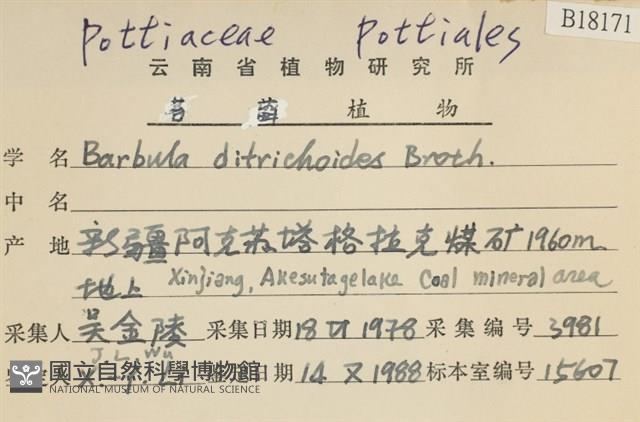 B18171
Pottiaceae Pottiales
云南省植物研究所
苔藓植物
学名 Barbula ditrichoides Broth.
中名
产地 新疆阿克苏塔格拉克煤矿1960m
地上 Xinjiang, Akesutagelake Coal mineral area
采集人 吴金陵 采集日期 18 1978 采集编号 3981
J. L. Wu
定日期 14 X 1988 标本室编号 15607
國立自然科學博物館
NATIONAL MUSEUM OF NATURAL SCIENCE